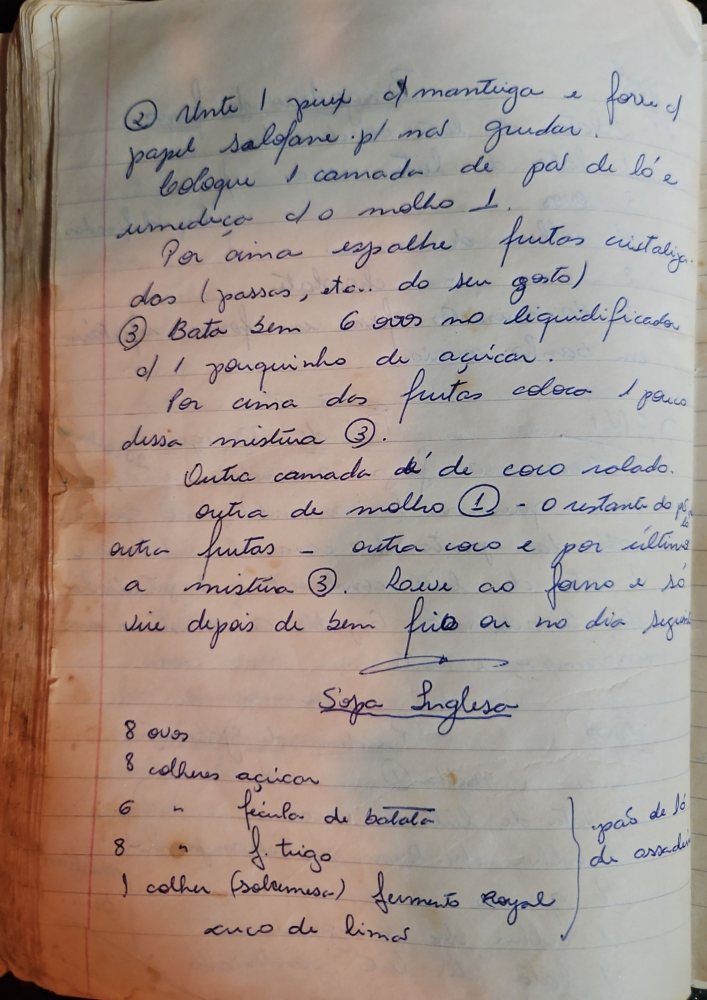 ② Unte 1 pirex c/ manteiga e forre c/
papel salofane p/ não grudar.
Coloque 1 camada de pão de ló e
umedeça c/ o molho 1.
Por cima espalhe frutas cristaliza-
das (passas, etc.. do seu gosto)
③ Bata bem 6 ovos no liquidificador
c/ 1 pouquinho de açúcar.
Por cima das frutas coloca 1 pouco
dessa mistura ③.
Outra camada de coco ralado.
outra de molho ① - o restante do pão
de ló
outra frutas - outra coco e por último
a mistura ③. Leve ao forno e só
vire depois de bem frio ou no dia
Sopa Inglesa
8 ovos
8 colheres açúcar
6 " fécula de batata
8 " f. trigo
1 colher (sobremesa) fermento Royal
suco de limão
pão de ló
de